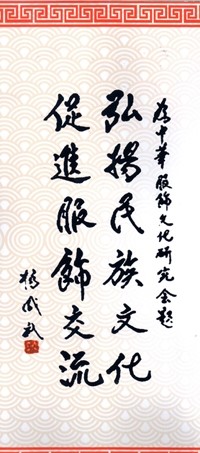 為中華服飾文化研究会題
弘揚民族文化
促進服飾交流
楊成武